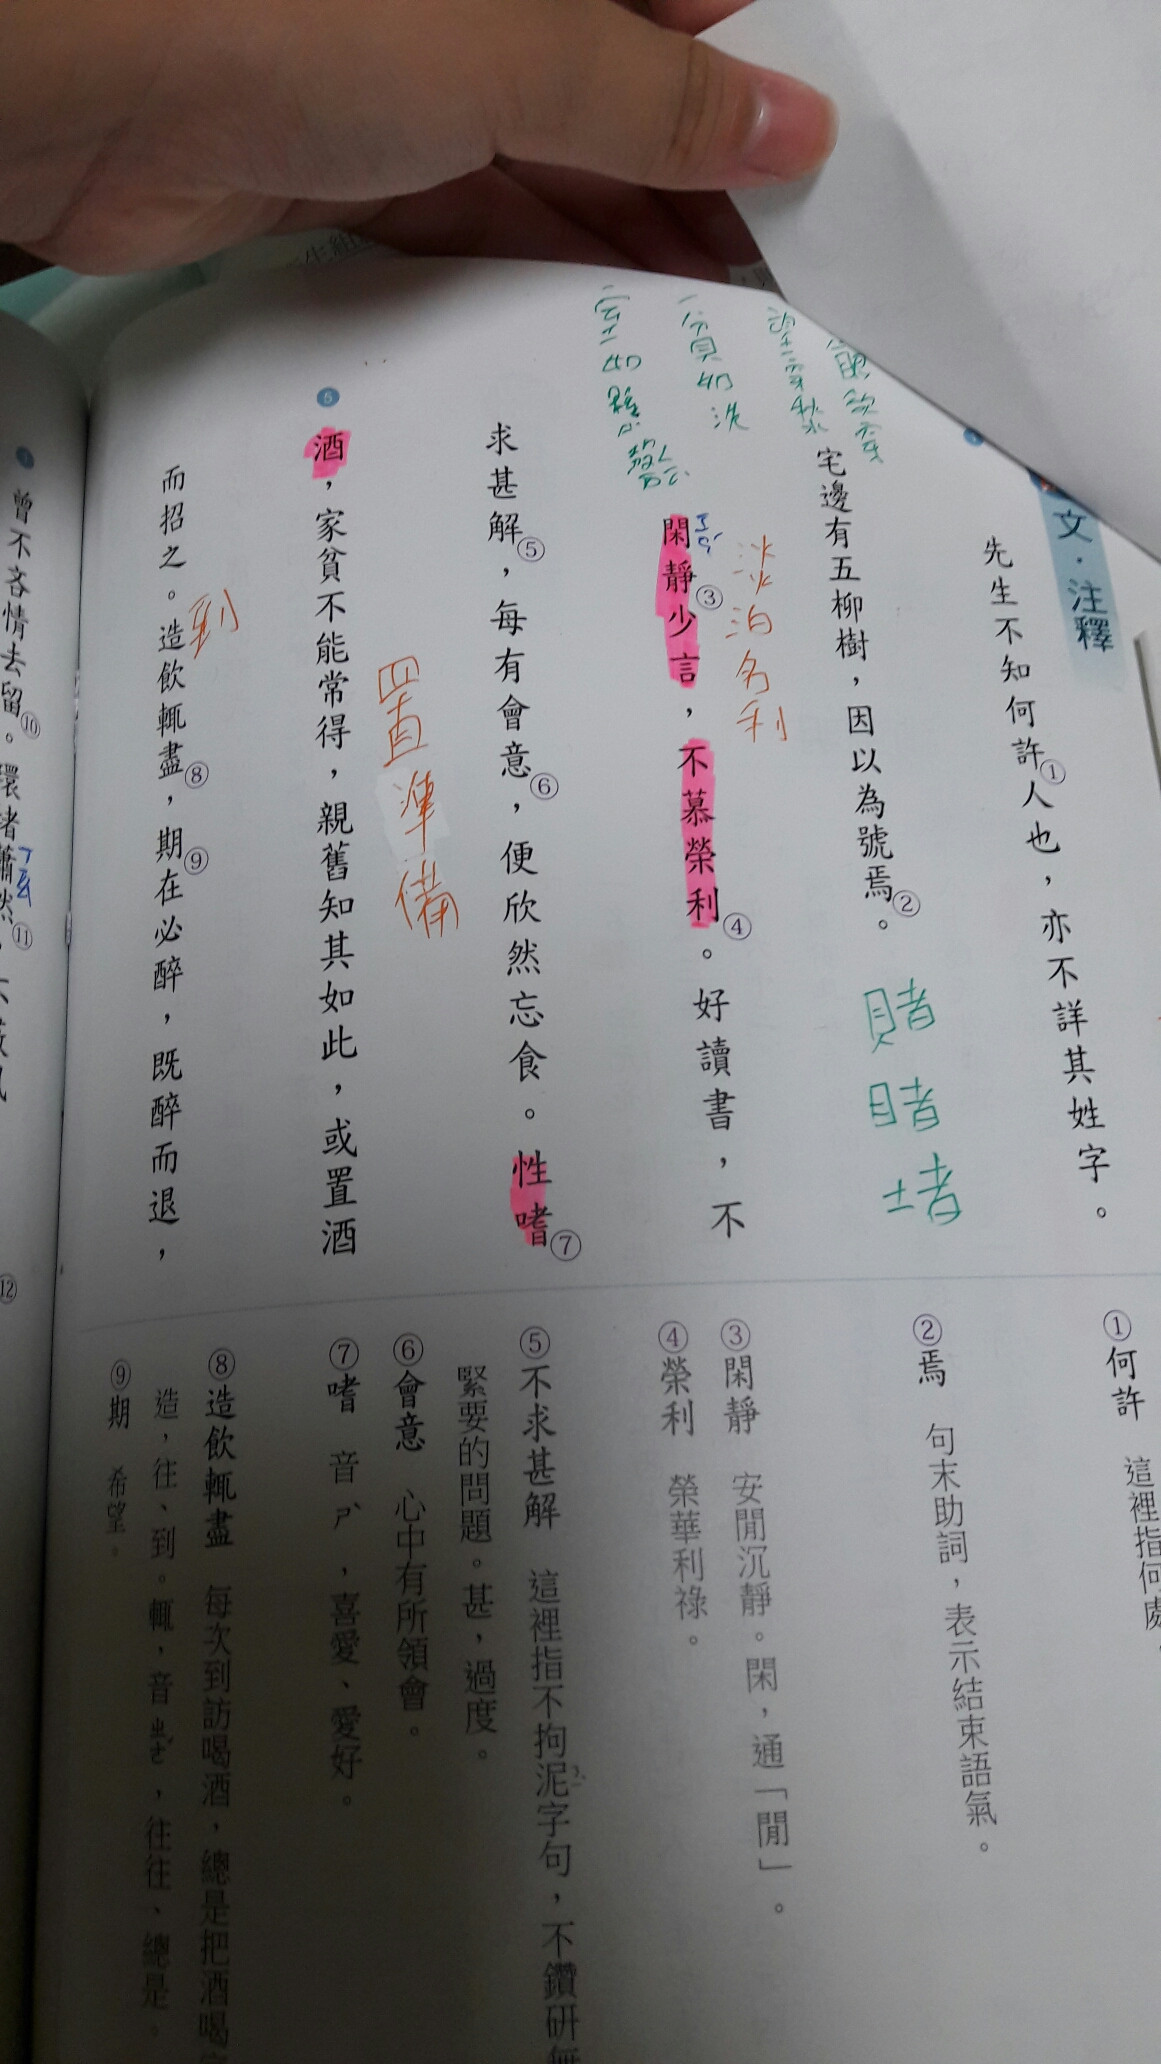 文．注釋
先生不知何許①人也，亦不詳其姓字。
宅邊有五柳樹，因以為號焉②。
賭
睹
堵
淡泊名利
閑靜③少言，不慕榮利④。好讀書，不
求甚解⑤，每有會意⑥，便欣然忘食。性嗜⑦
置準備
酒，家貧不能常得，親舊知其如此，或置酒
而招之。造飲輒盡⑧，期⑨在必醉，既醉而退，
到
曾不吝情去留⑩。環堵蕭然⑪，
⑫
5
如洗
①何許　這裡指何處
②焉　句末助詞，表示結束語氣。
③閑靜　安閒沉靜。閑，通「閒」。
④榮利　榮華利祿。
⑤不求甚解　這裡指不拘泥字句，不鑽研無
緊要的問題。甚，過度。
⑥會意　心中有所領會。
⑦嗜　音ㄕˋ，喜愛、愛好。
⑧造飲輒盡　每次到訪喝酒，總是把酒喝
造，往、到。輒，音ㄓㄜˊ，往往、總是。
⑨期　希望。